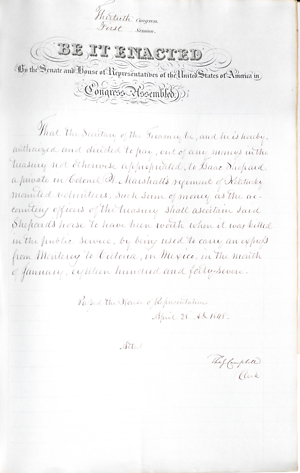 Thirtieth Congress.
First Session.
BE IT ENACTED
By the Senate and House of Representatives of the United States of America in
Congress Assembled
That the Secretary of the Treasury be, and he is hereby,
authorized and directed to pay, out of any money in the
treasury not otherwise appropriated, to Isaac Shepard,
a private in Colonel H. Marshall's regiment of Kentucky
mounted volunteers, such sum of money as the ac-
counting officers of the treasury shall ascertain said
Shepard's horse to have been worth when it was killed
in the public service, by being used to carry an express
from Monterey to Victoria, in Mexico, in the month
of January, eighteen hundred and forty-seven.
Passed the House of Representatives
April 21, 1848.
Attest
Thos. J. Campbell
Clerk